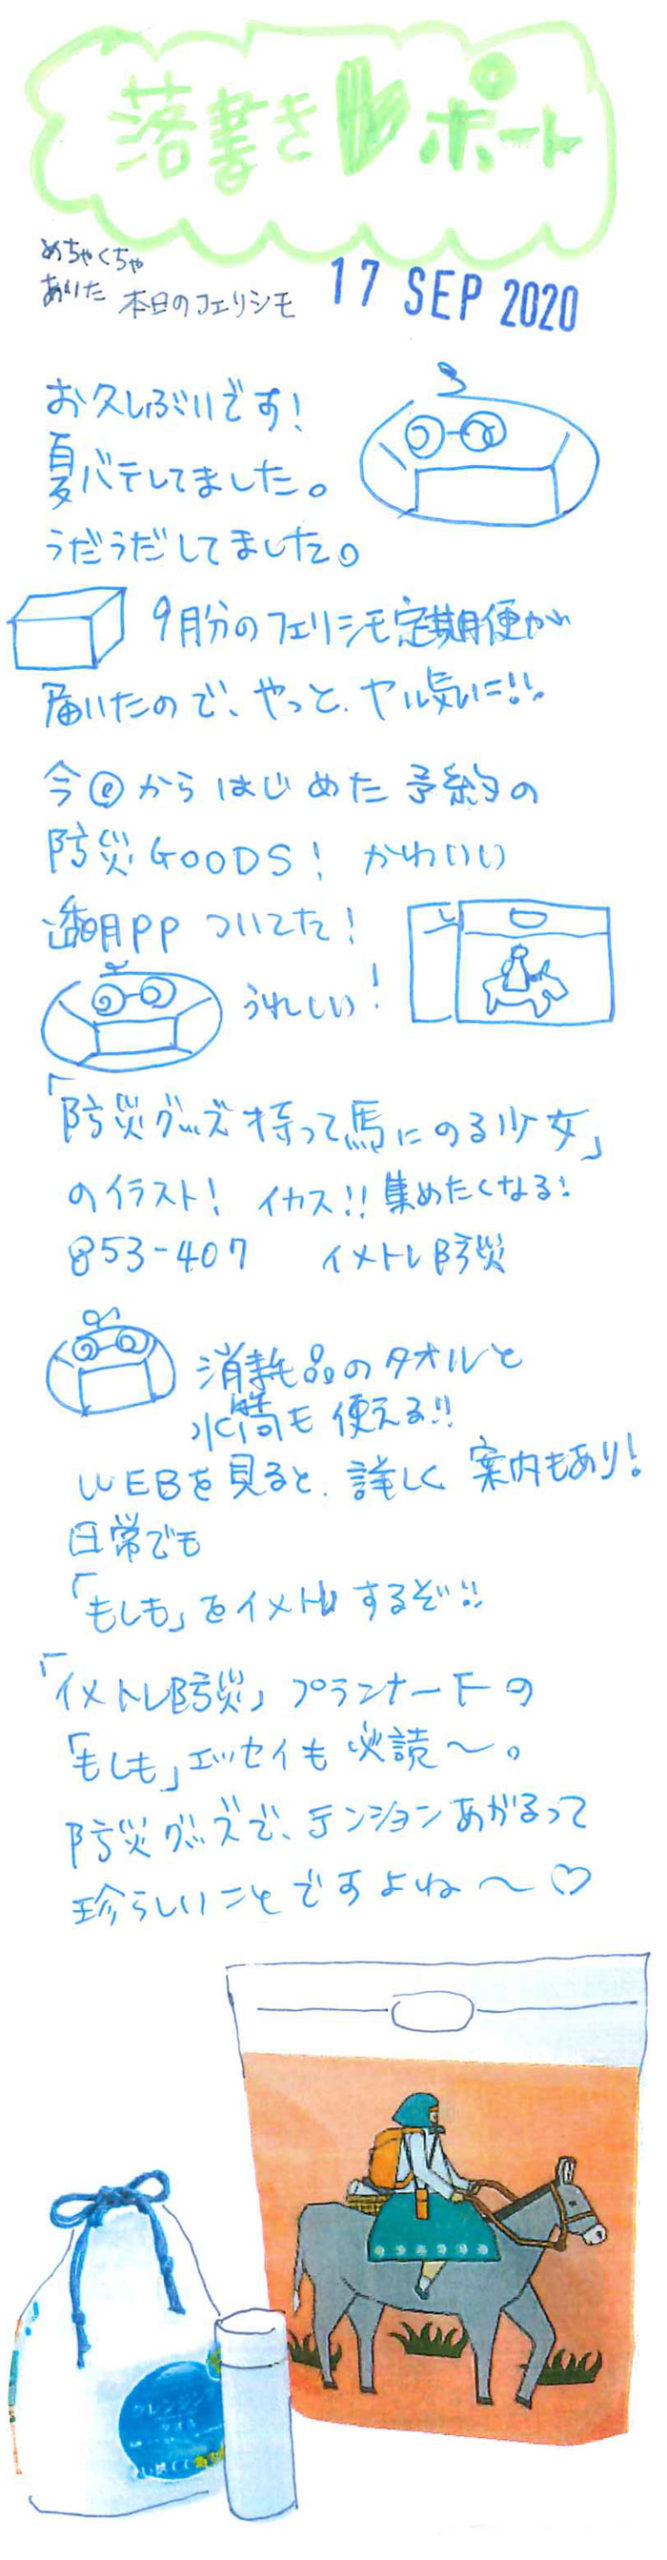 落書きレポート
めちゃくちゃ
あいた 本日のフェリシモ
17 SEP 2020
お久しぶりです!
夏バテしてました。
うだうだしてました。
9月分のフェリシモ定期便が
届いたので、やっと、ヤル気に!!
今回からはじめた予約の
防災GOODS! かわいい
透明PP ついてた!
うれしい!
「防災グッズ持って馬にのる少女」
のイラスト! イカス!! 集めたくなる!
853-407 イメトレ防災
消耗品のタオルと
水筒も使える!!
WEBを見ると、詳しく案内もあり!
日常でも
「もしも」をイメトレするぞ!!
「イメトレ防災」プランナーFの
「もしも」エッセイも必読〜。
防災グッズで、テンションあがるって
珍らしいことですよね〜♡
クレンジング
タオル